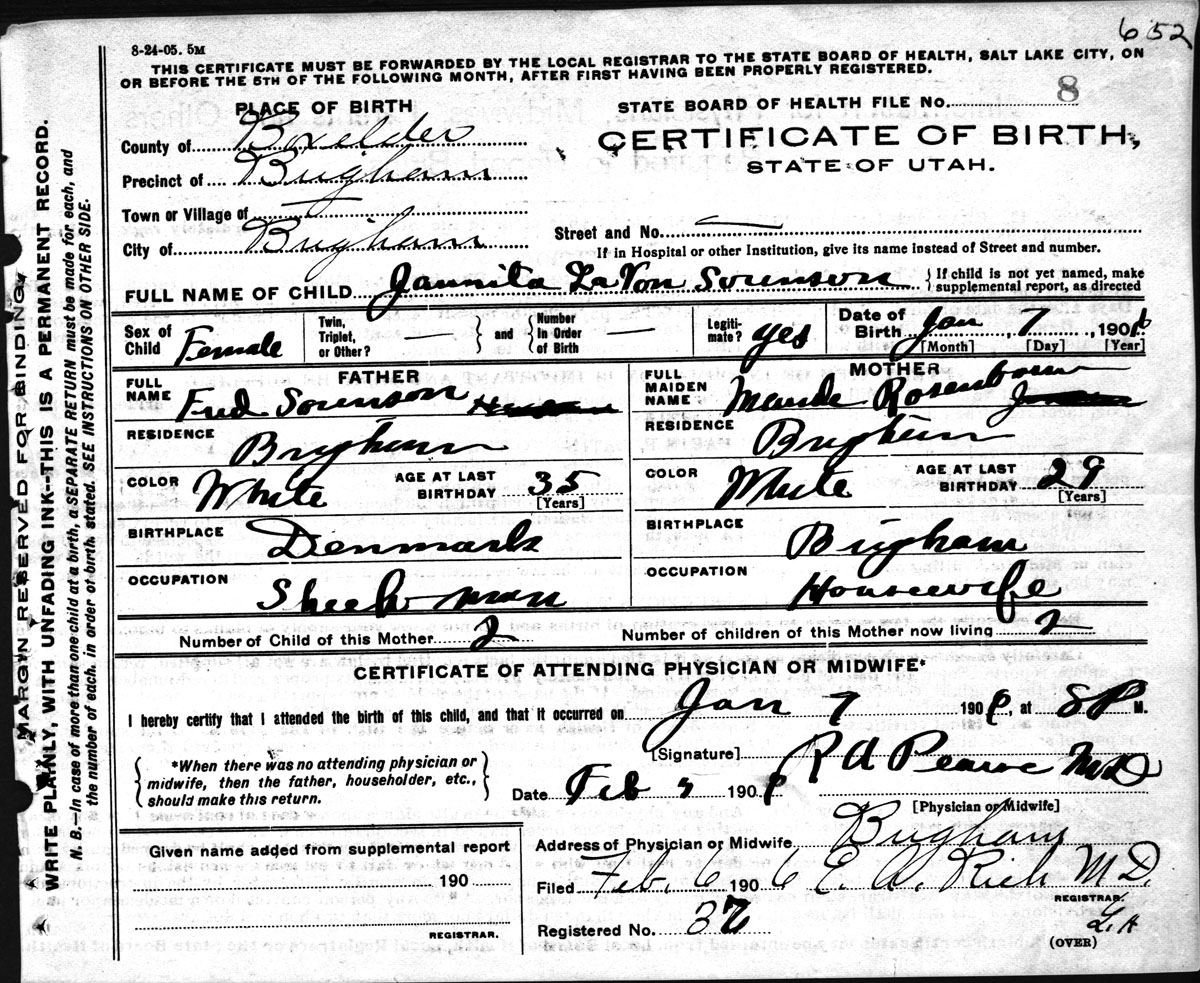 652
8-24-05. 5M
THIS CERTIFICATE MUST BE FORWARDED BY THE LOCAL REGISTRAR TO THE STATE BOARD OF HEALTH, SALT LAKE CITY, ON
OR BEFORE THE 5TH OF THE FOLLOWING MONTH, AFTER FIRST HAVING BEEN PROPERLY REGISTERED.
PLACE OF BIRTH
STATE BOARD OF HEALTH FILE No. 8
County of Boxelder
CERTIFICATE OF BIRTH,
STATE OF UTAH.
Precinct of Brigham
Town or Village of —
City of Brigham
Street and No. —
If in Hospital or other Institution, give its name instead of Street and number.
FULL NAME OF CHILD Jaunita LaVon Sorenson } If child is not yet named, make supplemental report, as directed
Sex of Child Female
Twin, Triplet, or Other? — } and { Number in Order of Birth —
Legitimate? yes
Date of Birth Jan 7, 1906
[Month] [Day] [Year]
FATHER
FULL NAME Fred Sorenson
RESIDENCE Brigham
COLOR White AGE AT LAST BIRTHDAY 35 [Years]
BIRTHPLACE Denmark
OCCUPATION Sheep man
MOTHER
FULL MAIDEN NAME Maude Rosenbaum
RESIDENCE Brigham
COLOR White AGE AT LAST BIRTHDAY 29 [Years]
BIRTHPLACE Brigham
OCCUPATION Housewife
Number of Child of this Mother 2 Number of children of this Mother now living 2
CERTIFICATE OF ATTENDING PHYSICIAN OR MIDWIFE*
I hereby certify that I attended the birth of this child, and that it occurred on Jan 7 190, at 8 P M.
*When there was no attending physician or
midwife, then the father, householder, etc.,
should make this return.
[Signature] R A Pearse MD
Date Feb 190
[Physician or Midwife]
Given name added from supplemental report
190
REGISTRAR.
Address of Physician or Midwife Brigham
Filed Feb. 6 1906 E. A. Rich M D.
REGISTRAR.
Registered No.
(OVER)
MARGIN RESERVED FOR BINDING.
WRITE PLAINLY, WITH UNFADING INK--THIS IS A PERMANENT RECORD.
N. B.—In case of more than one child at a birth, a SEPARATE RETURN must be made for each, and
the number of each, in order of birth, stated. SEE INSTRUCTIONS ON OTHER SIDE.